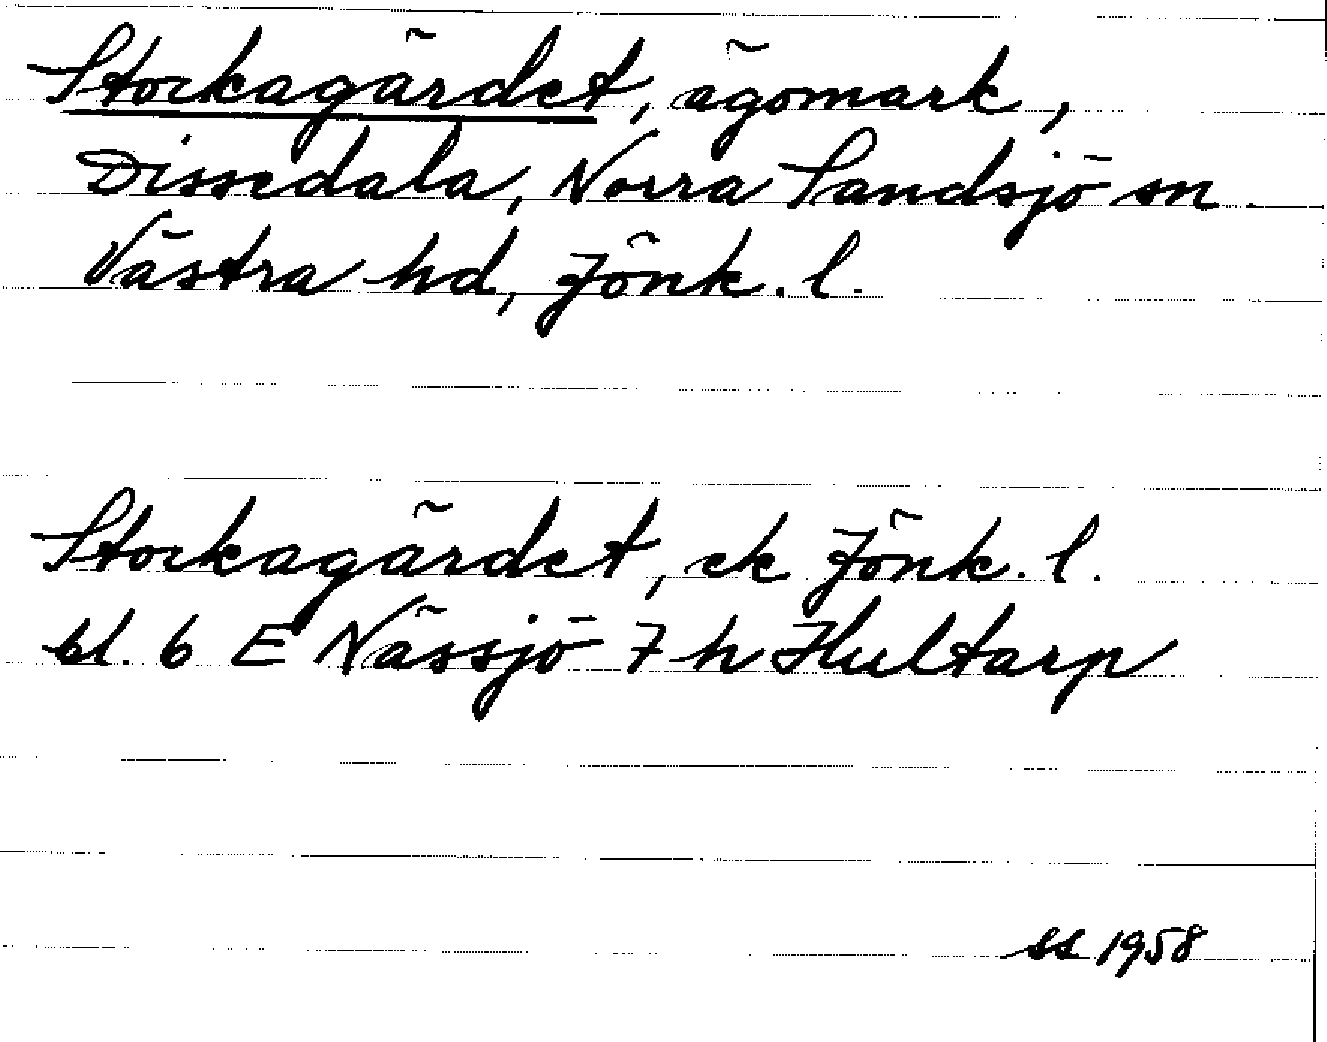 Stockagärdet, ägomark,
Dissedala, Norra Sandsjö sn
Västra hd, Jönk. l.
Stockagärdet, ek Jönk. l.
bl. 6 E Nässjö 7 h Hultarp
ss 1958